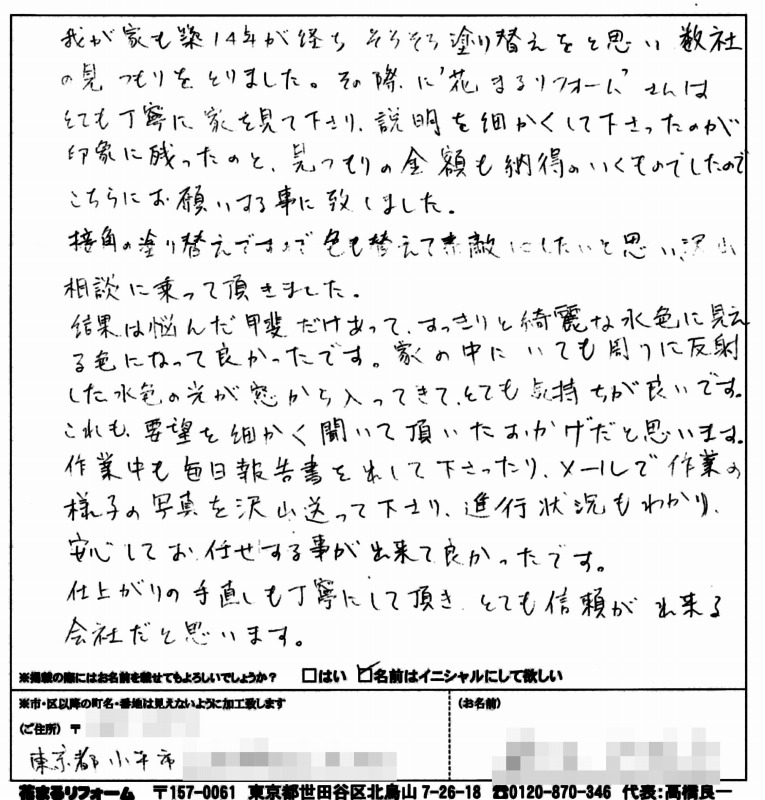 我が家も築14年が経ち そろそろ塗り替えをと思い 数社
の見つもりをとりました。その際に'花まるリフォーム'さんは
とても丁寧に家を見て下さり、説明を細かくして下さったのが
印象に残ったのと、見つもりの金額も納得のいくものでしたので
こちらにお願いする事に致しました。
接角の塗り替えですので色も替えて素敵にしたいと思い沢山
相談に乗って頂きました。
結果は悩んだ甲斐だけあって、すっきりと綺麗な水色に見え
る色になって良かったです。家の中にいても周りに反射
した水色の光が窓から入ってきて、とても気持ちが良いです。
これも、要望を細かく聞いて頂いたおかげだと思います。
作業中も毎日報告書を出して下さったり、メールで作業の
様子の写真を沢山送って下さり、進行状況もわかり、
安心してお任せする事が出来て良かったです。
仕上がりの手直しも丁寧にして頂き、とても信頼が出来る
会社だと思います。
※掲載の際にはお名前を載せてもよろしいでしょうか? □はい ☑名前はイニシャルにして欲しい
※市・区以降の町名・番地は見えないように加工致します
(ご住所) 〒
東京都小平市
(お名前)
花まるリフォーム 〒157-0061 東京都世田谷区北烏山 7-26-18 ☎0120-870-346 代表:高橋良一